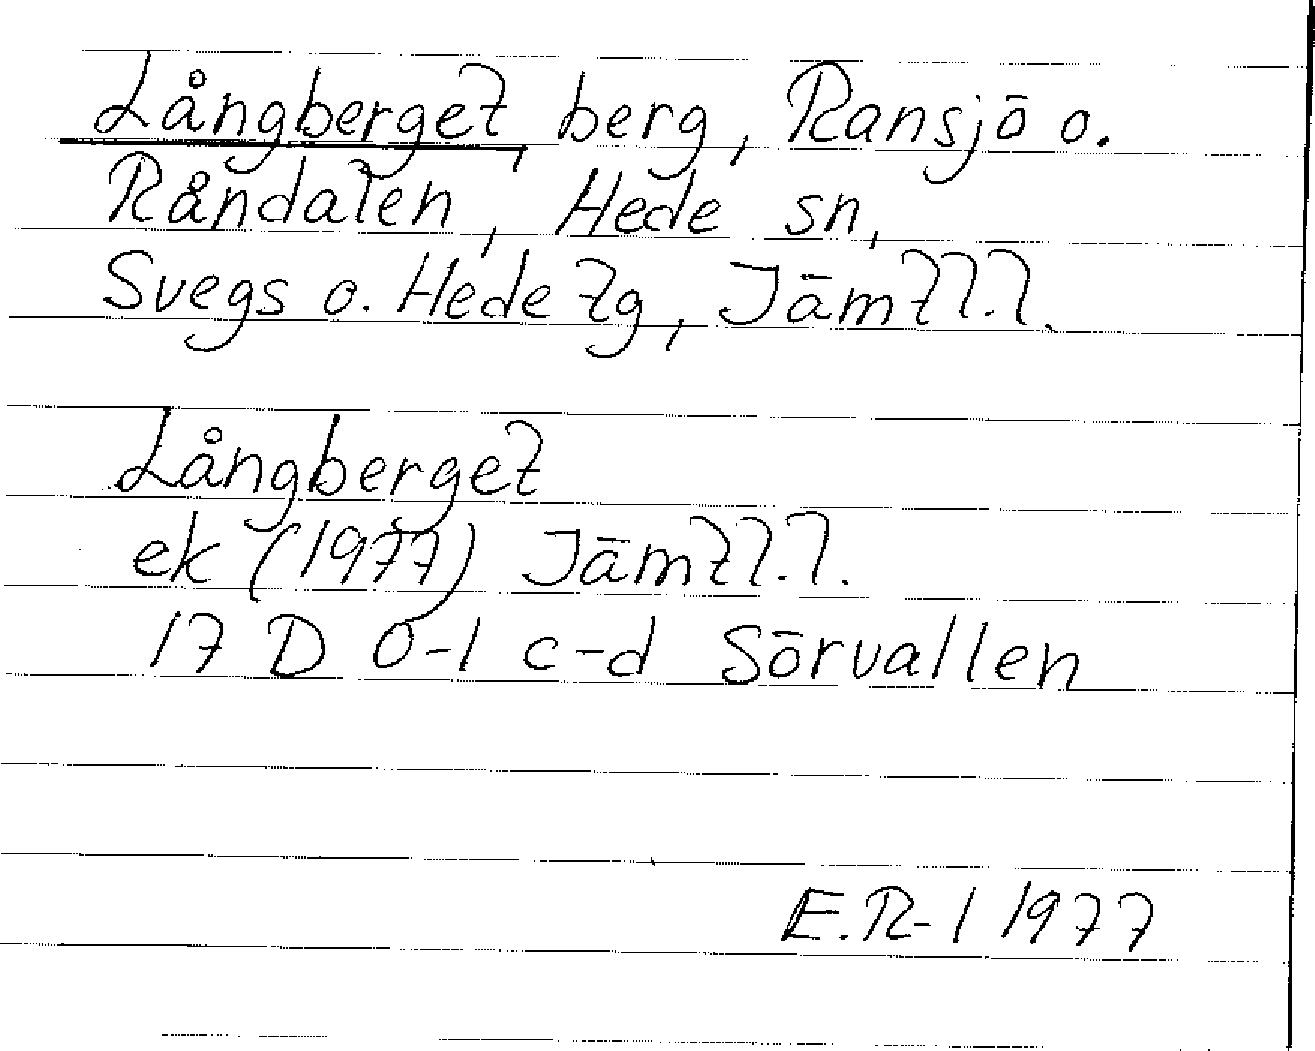 Långberget, berg, Ransjö o.
Råndalen, Hede sn,
Svegs o. Hede tg, Jämtl.l.
Långberget
ek (1977) Jämtl.l.
17 D 0-1 c-d Sörvallen
E.R-l 1977